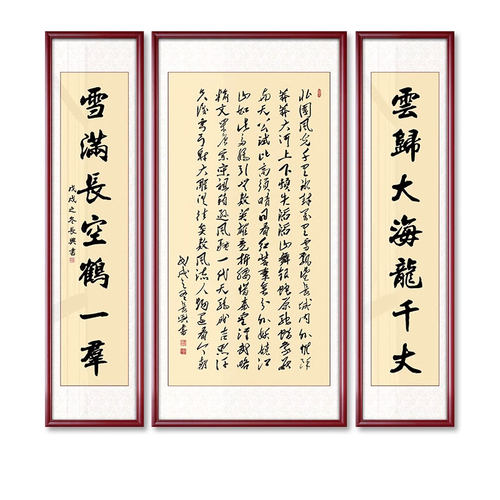 雲歸大海龍千丈
北國風光千里冰封萬里雪飄望長城内外惟餘
莽莽大河上下頓失滔滔山舞銀蛇原馳蠟象欲
與天公試比高須晴日看紅裝素裹分外妖嬈江
山如此多嬌引無數英雄競折腰惜秦皇漢武略
輸文采唐宗宋祖稍遜風騷一代天驕成吉思汗
只識彎弓射大雕俱往矣數風流人物還看今朝
戊戌之冬長興書
雪滿長空鶴一羣
戊戌之冬長興書